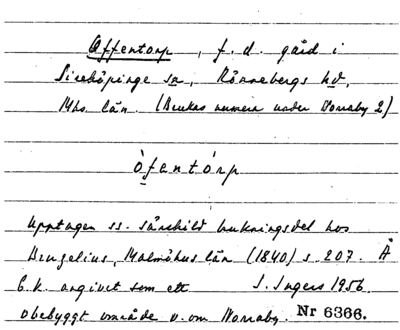 Offentorp, f.d. gård i
Sireköpinge sn, Rönnebergs hd,
Mhs. län. (Brukas numera under Norraby 2)
òfentórp
Upptagen ss. särskild bukningsdel hos
Bruzelius, Malmöhus län (1840) s. 207. Å
E.k. angivet som ett
I. Ingers 1956.
obebyggt område v. om Norraby. Nr 6366.